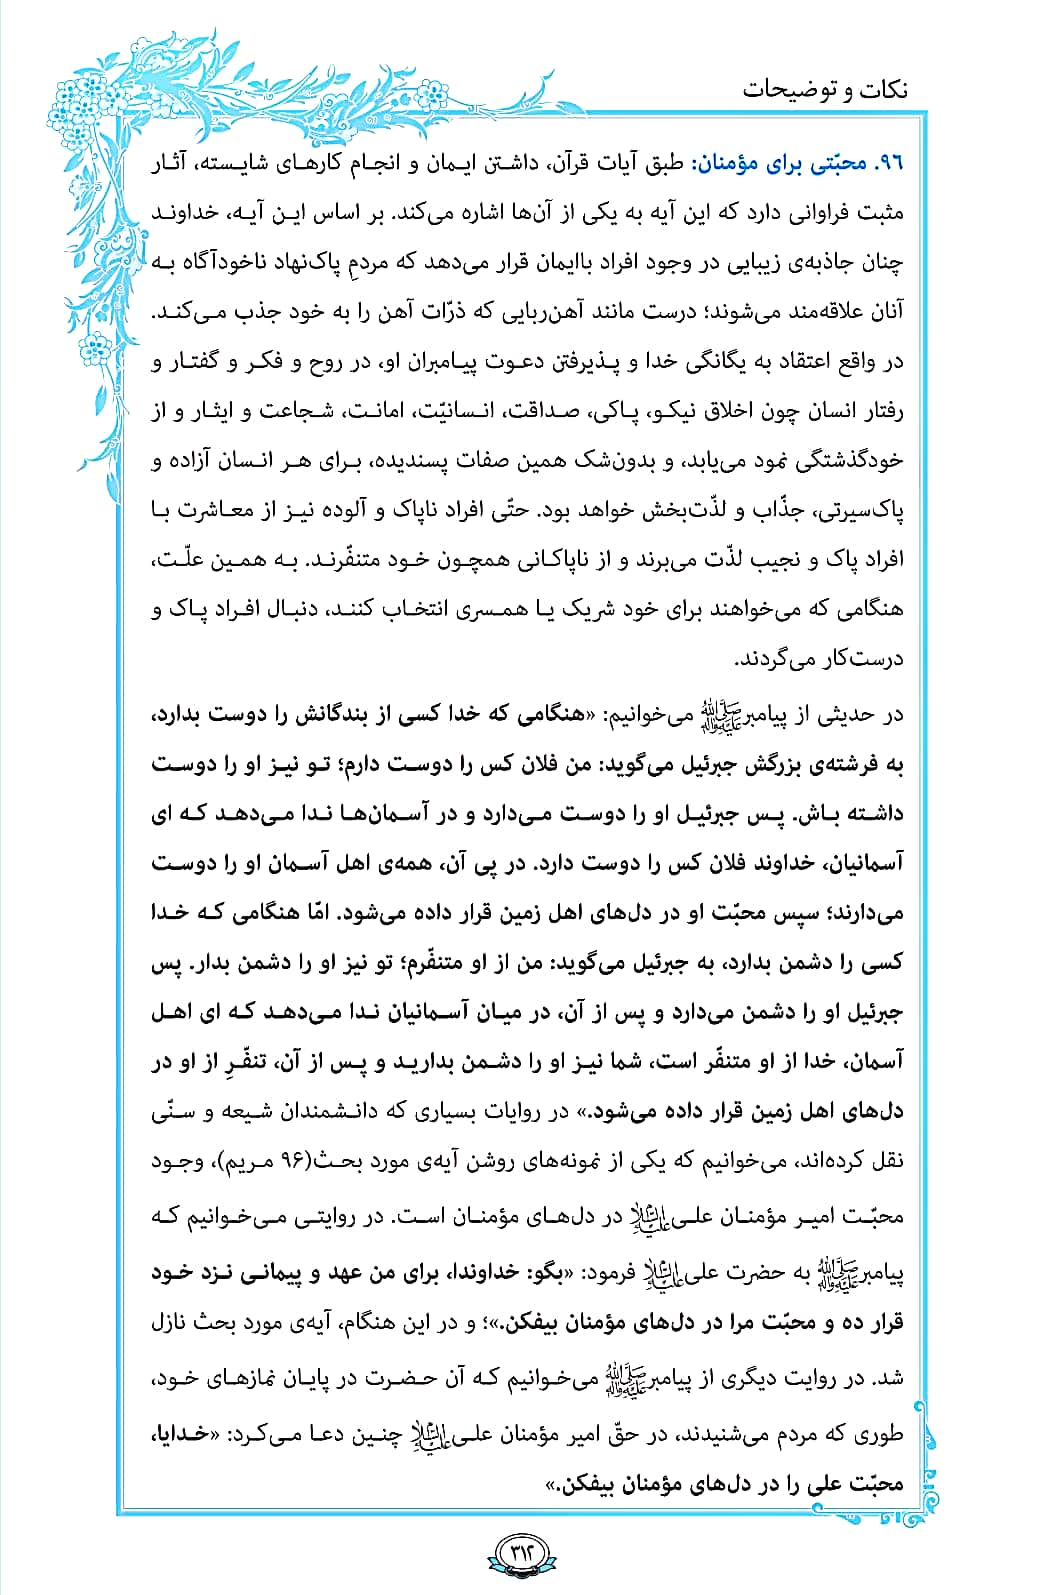 نکات و توضیحات
۹۶. محبّتی برای مؤمنان: طبق آیات قرآن، داشتن ایمان و انجام کارهای شایسته، آثار
مثبت فراوانی دارد که این آیه به یکی از آن‌ها اشاره می‌کند. بر اساس این آیه، خداوند
چنان جاذبه‌ی زیبایی در وجود افراد باایمان قرار می‌دهد که مردمِ پاک‌نهاد ناخودآگاه به
آنان علاقه‌مند می‌شوند؛ درست مانند آهن‌ربایی که ذرّات آهن را به خود جذب می‌کند.
در واقع اعتقاد به یگانگی خدا و پذیرفتن دعوت پیامبران او، در روح و فکر و گفتار و
رفتار انسان چون اخلاق نیکو، پاکی، صداقت، انسانیّت، امانت، شجاعت و ایثار و از
خودگذشتگی نمود می‌یابد، و بدون‌شک همین صفات پسندیده، برای هر انسان آزاده و
پاک‌سیرتی، جذّاب و لذّت‌بخش خواهد بود. حتّی افراد ناپاک و آلوده نیز از معاشرت با
افراد پاک و نجیب لذّت می‌برند و از ناپاکانی همچون خود متنفّرند. به همین علّت،
هنگامی که می‌خواهند برای خود شریک یا همسری انتخاب کنند، دنبال افراد پاک و
درست‌کار می‌گردند.
در حدیثی از پیامبر صلی الله علیه وآله می‌خوانیم: «هنگامی که خدا کسی از بندگانش را دوست بدارد،
به فرشته‌ی بزرگش جبرئیل می‌گوید: من فلان کس را دوست دارم؛ تو نیز او را دوست
داشته باش. پس جبرئیل او را دوست می‌دارد و در آسمان‌ها ندا می‌دهد که ای
آسمانیان، خداوند فلان کس را دوست دارد. در پی آن، همه‌ی اهل آسمان او را دوست
می‌دارند؛ سپس محبّت او در دل‌های اهل زمین قرار داده می‌شود. امّا هنگامی که خدا
کسی را دشمن بدارد، به جبرئیل می‌گوید: من از او متنفّرم؛ تو نیز او را دشمن بدار. پس
جبرئیل او را دشمن می‌دارد و پس از آن، در میان آسمانیان ندا می‌دهد که ای اهل
آسمان، خدا از او متنفّر است، شما نیز او را دشمن بدارید و پس از آن، تنفّرِ از او در
دل‌های اهل زمین قرار داده می‌شود.» در روایات بسیاری که دانشمندان شیعه و سنّی
نقل کرده‌اند، می‌خوانیم که یکی از نمونه‌های روشن آیه‌ی مورد بحث(۹۶ مریم)، وجود
محبّت امیر مؤمنان علی علیه السلام در دل‌های مؤمنان است. در روایتی می‌خوانیم که
پیامبر صلی الله علیه وآله به حضرت علی علیه السلام فرمود: «بگو: خداوندا، برای من عهد و پیمانی نزد خود
قرار ده و محبّت مرا در دل‌های مؤمنان بیفکن.»؛ و در این هنگام، آیه‌ی مورد بحث نازل
شد. در روایت دیگری از پیامبر صلی الله علیه وآله می‌خوانیم که آن حضرت در پایان نمازهای خود،
طوری که مردم می‌شنیدند، در حقّ امیر مؤمنان علی علیه السلام چنین دعا می‌کرد: «خدایا،
محبّت علی را در دل‌های مؤمنان بیفکن.»
۳۱۲